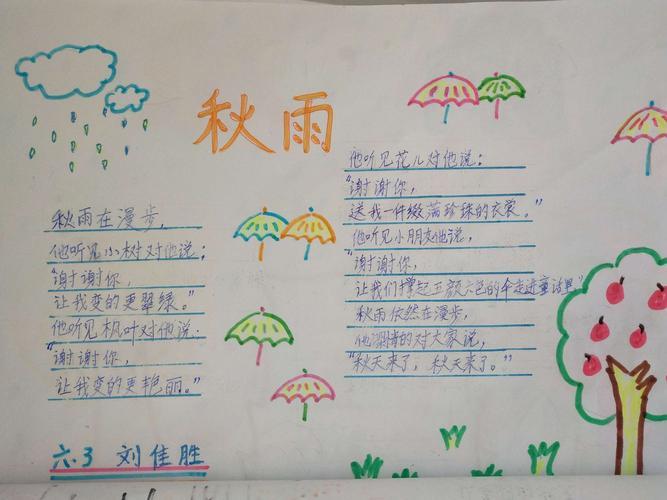 秋雨
秋雨在漫步，
他听见小树对他说：
“谢谢你，
让我变的更翠绿。”
他听见枫叶对他说：
“谢谢你，
让我变的更艳丽。”
他听见花儿对他说：
“谢谢你，
送我一件缀满珍珠的衣裳。”
他听见小朋友他说，
“谢谢你，
让我们撑起五颜六色的伞走进童话里”
秋雨依然在漫步，
他悄悄的对大家说，
“秋天来了，秋天来了。”
六.3 刘佳胜